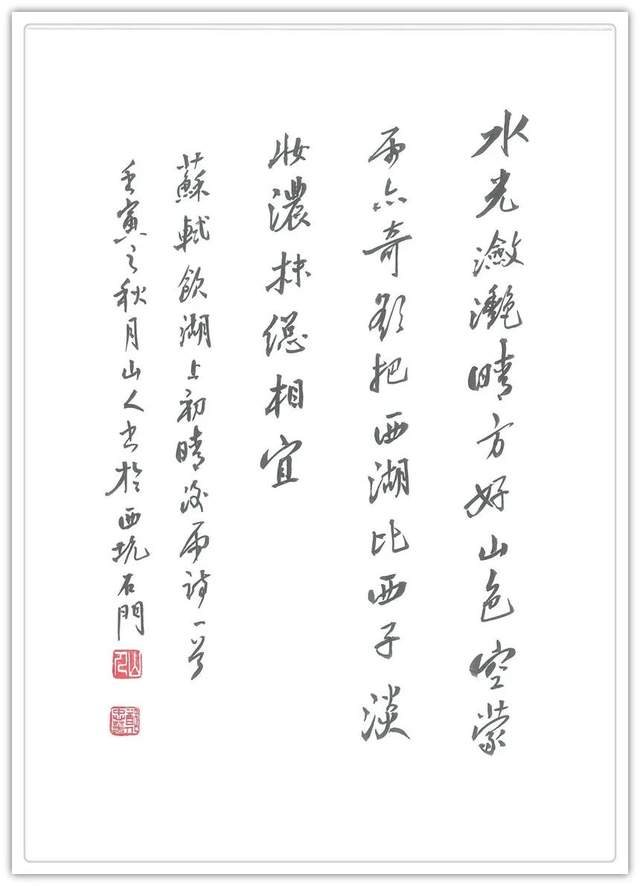 水光瀲灩晴方好山色空蒙
雨亦奇欲把西湖比西子淡
妝濃抹總相宜
蘇軾飲湖上初晴後雨詩一首
壬寅之秋月山人書於西坑石門
山人